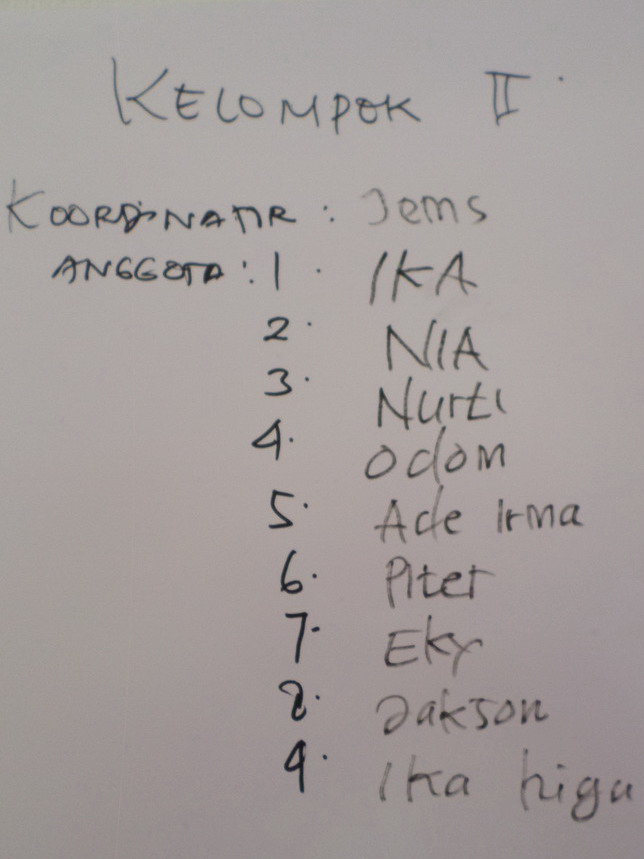 KELOMPOK II
KOORDINATIR : Jems
ANGGOTA : 1. IKA
2. NIA
3. Nurti
4. Odom
5. Ade Irma
6. Piter
7. Eky
8. Jakson
9. Ika higu